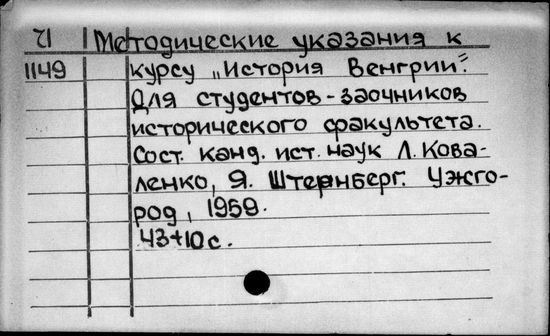 И Методические указания к
1149 курсу „История Венгрии".
Для студентов-заочников
исторического факультета.
Сост. канд. ист. наук Л. Кова-
ленко, Я. Штернберг. Ужго-
род, 1959.
43+10 с.